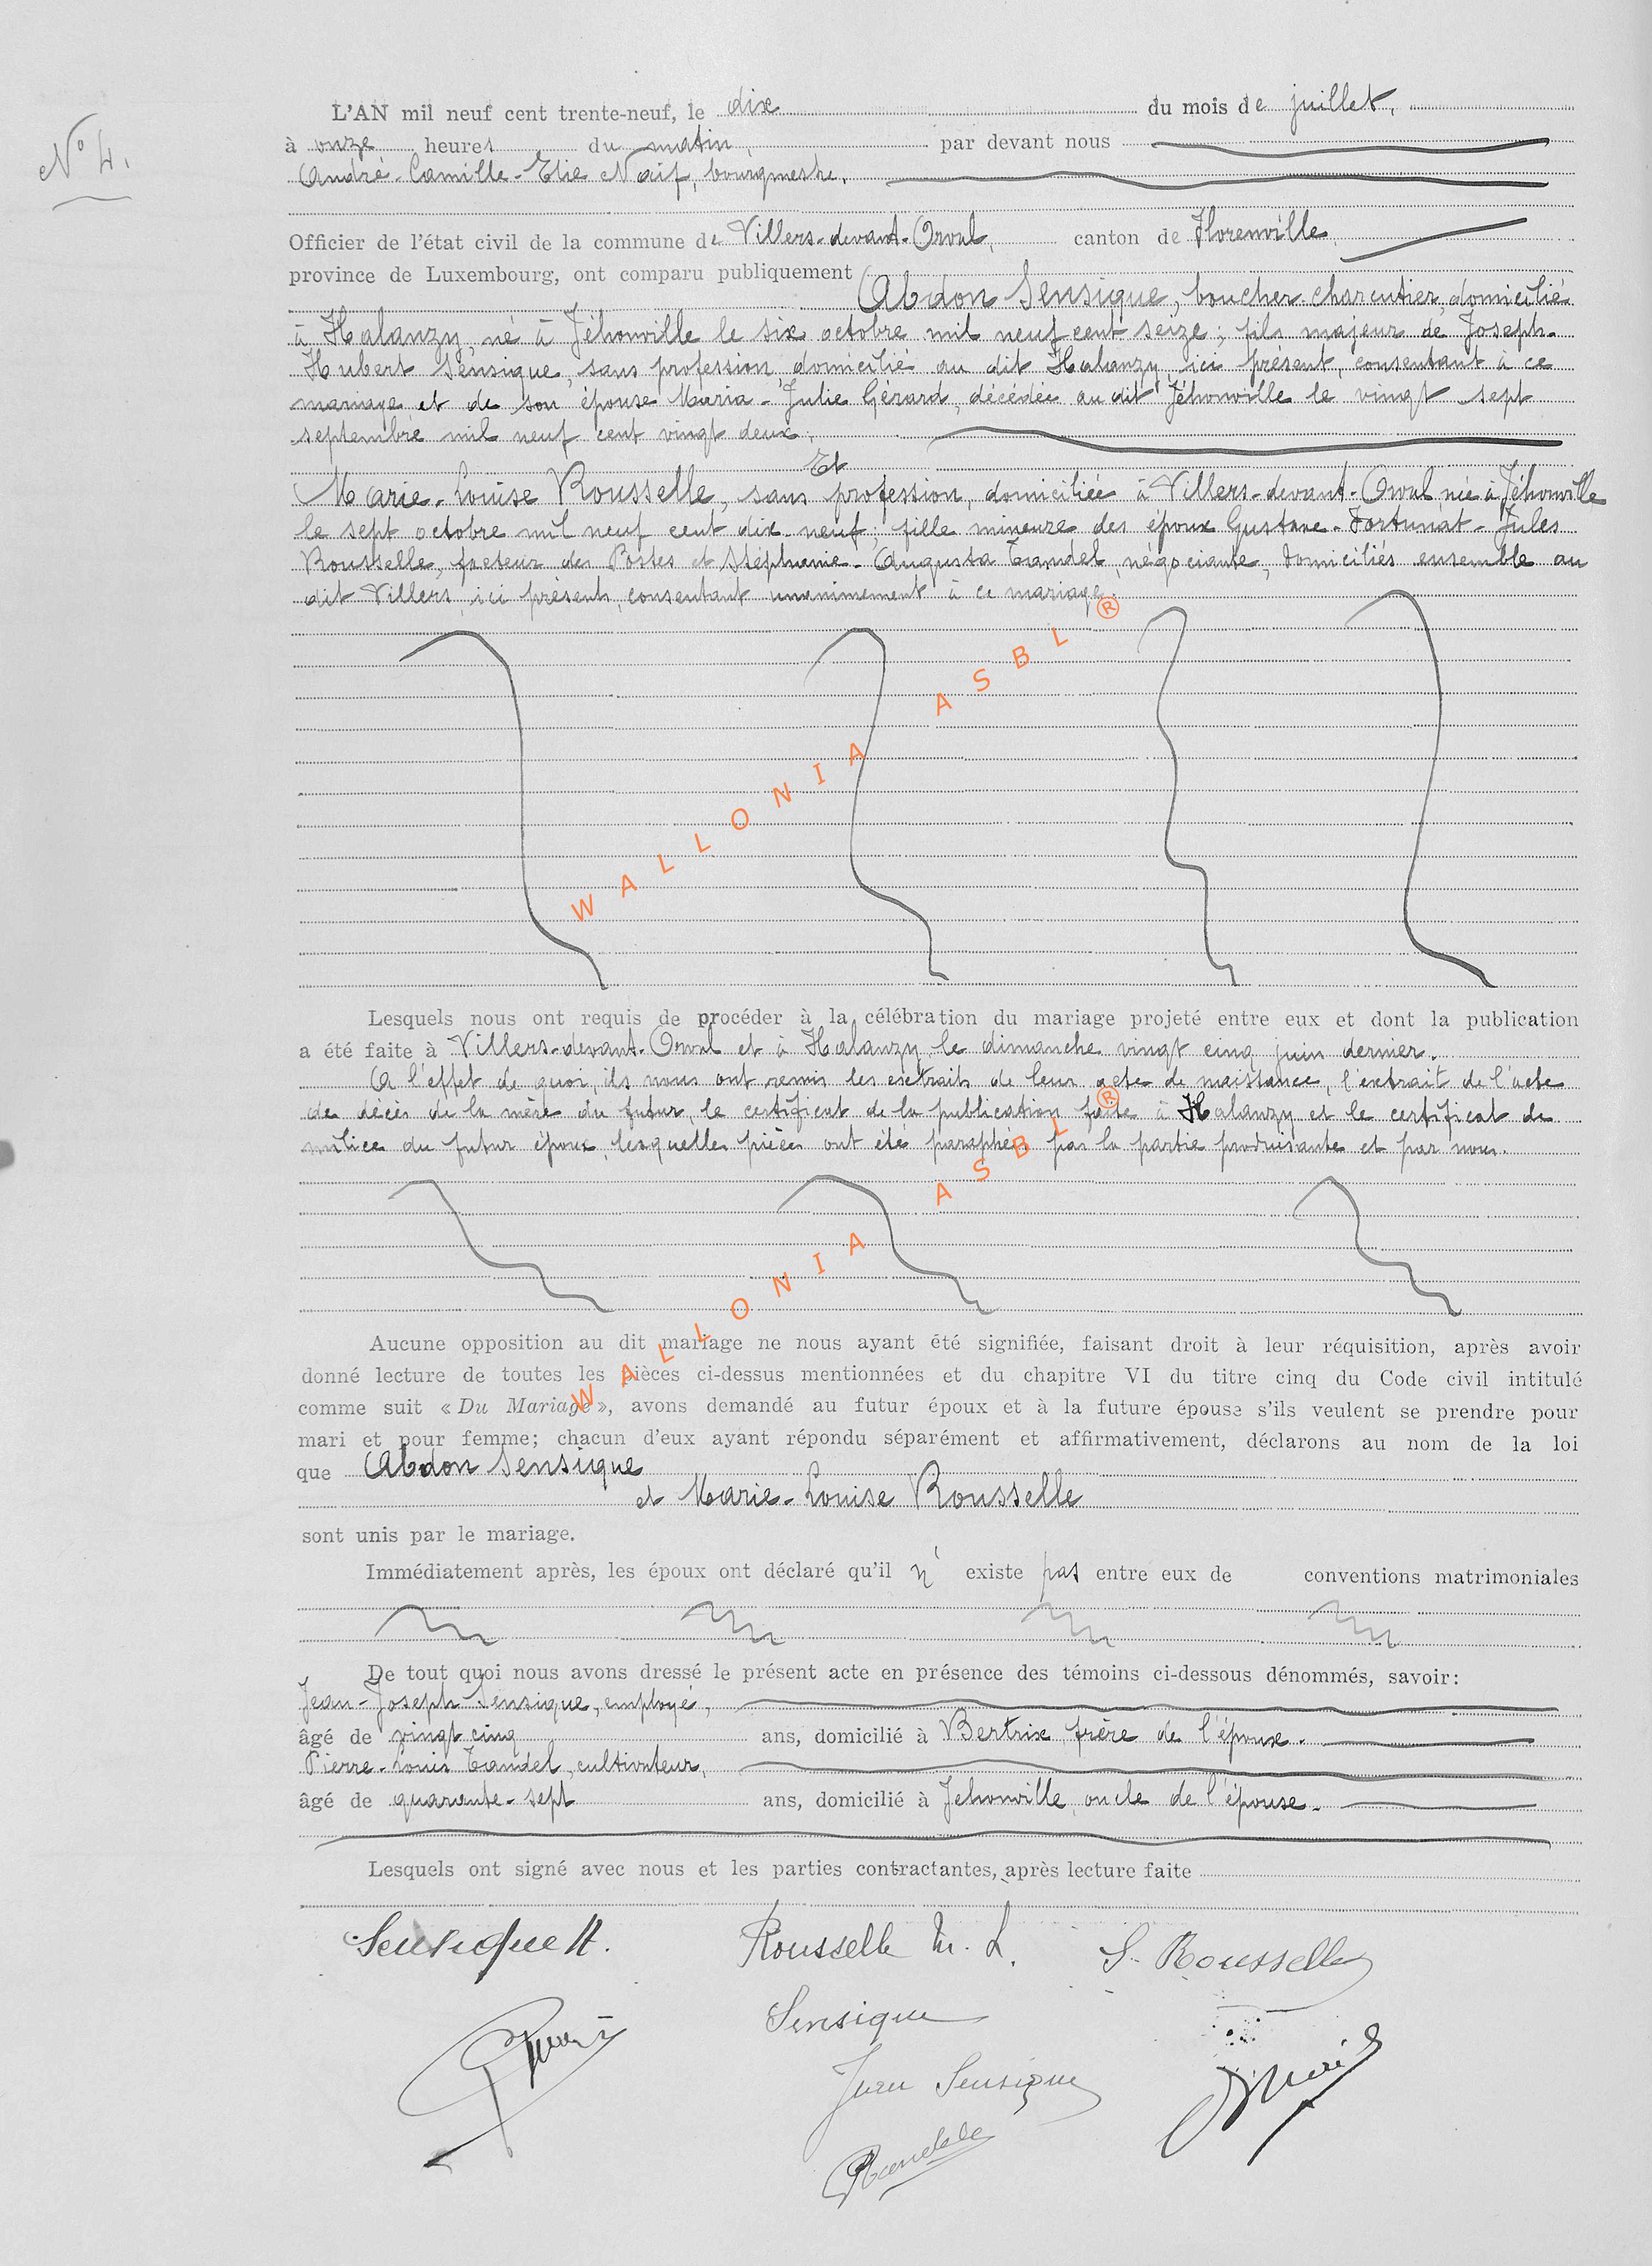 N° 4.
L'AN mil neuf cent trente-neuf, le dix du mois de juillet,
à onze heures du matin, par devant nous
André-Camille-Elie Naif, bourgmestre,
Officier de l'état civil de la commune de Villers-devant-Orval, canton de Florenville,
province de Luxembourg, ont comparu publiquement
Abdon Sensique, boucher charcutier, domicilié
à Halanzy, né à Jéhonville le six octobre mil neuf cent seize; fils majeur de Joseph-
Hubert Sensique, sans profession, domicilié au dit Halanzy, ici présent, consentant à ce
mariage et de son épouse Maria-Julie Gérard, décédée au dit Jéhonville le vingt sept
septembre mil neuf cent vingt deux;
Et
Marie-Louise Rousselle, sans profession, domiciliée à Villers-devant-Orval née à Jéhonville
le sept octobre mil neuf cent dix-neuf; fille mineure des époux Gustave-Fortunat-Jules
Rousselle, facteur des Postes et Stéphanie-Augusta Tandel, négociante, domiciliés ensemble au
dit Villers, ici présents, consentant unanimement à ce mariage.
WALLONIA ASBL ®
Lesquels nous ont requis de procéder à la célébration du mariage projeté entre eux et dont la publication
a été faite à Villers-devant-Orval et à Halanzy, le dimanche vingt cinq juin dernier.
A l'effet de quoi, ils nous ont remis les extraits de leur acte de naissance, l'extrait de l'acte
de décès de la mère du futur, le certificat de la publication faite à Halanzy et le certificat de
milice du futur époux, lesquelles pièces ont été paraphées par la partie produisante et par nous.
WALLONIA ASBL ®
Aucune opposition au dit mariage ne nous ayant été signifiée, faisant droit à leur réquisition, après avoir
donné lecture de toutes les pièces ci-dessus mentionnées et du chapitre VI du titre cinq du Code civil intitulé
comme suit « Du Mariage », avons demandé au futur époux et à la future épouse s'ils veulent se prendre pour
mari et pour femme; chacun d'eux ayant répondu séparément et affirmativement, déclarons au nom de la loi
que Abdon Sensique
et Marie-Louise Rousselle
sont unis par le mariage.
Immédiatement après, les époux ont déclaré qu'il n' existe pas entre eux de conventions matrimoniales
De tout quoi nous avons dressé le présent acte en présence des témoins ci-dessous dénommés, savoir:
Jean-Joseph Sensique, employé,
âgé de vingt cinq ans, domicilié à Bertrix, frère de l'époux.
Pierre-Louis Tandel, cultivateur,
âgé de quarante-sept ans, domicilié à Jehonville, oncle de l'épouse.
Lesquels ont signé avec nous et les parties contractantes, après lecture faite
Sensique A. Rousselle M. L. S. Rousselle
Sensique
Jean Sensique